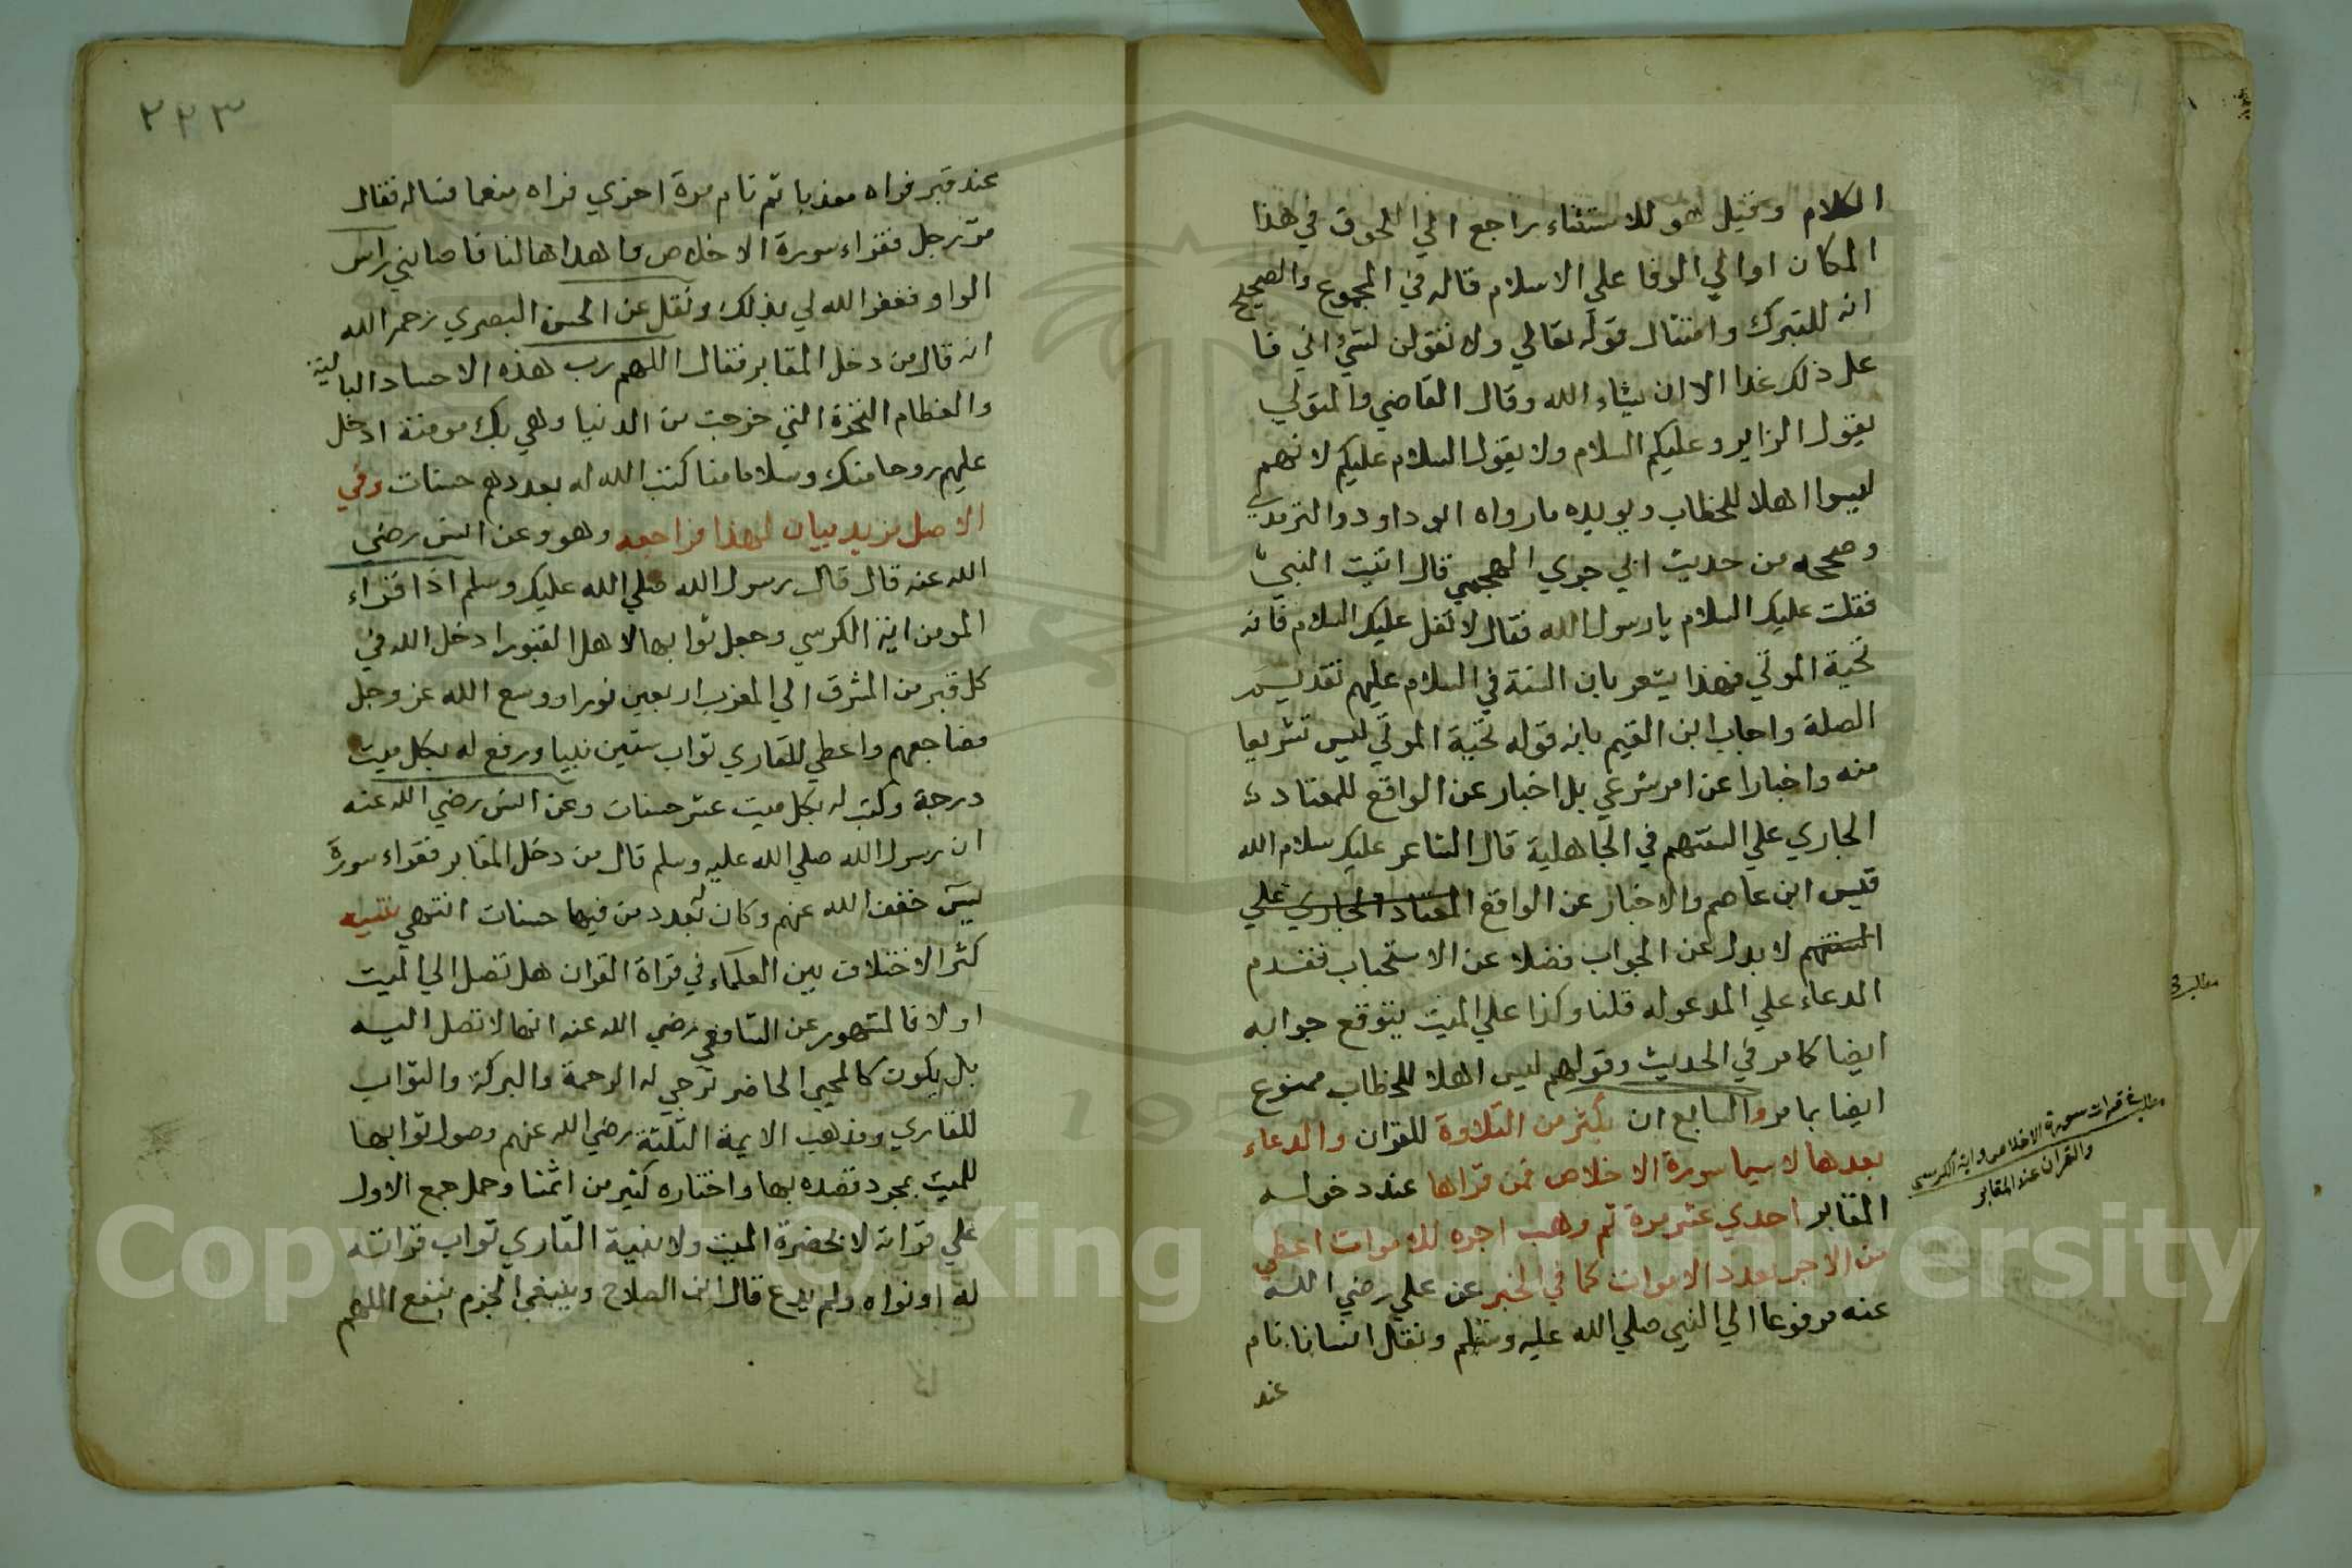 الكلام وقيل هو للاستثناء راجع الي اللحوق في هذا
المكان او الي الوفا علي الاسلام قاله في المجموع والصحيح
انه للتبرك وامتثال قوله تعالي ولا تقولن لشيء اني فا
عل ذلك غدا الا ان يشاء الله وقال القاضي والمتولي
يقول الزاير وعليكم السلام ولا يقول السلام عليكم لانهم
ليسوا اهلا للخطاب ويويده ما رواه ابو داود والترمذي
وصححه من حديث ابي جري الهجيمي قال اتيت النبي
فقلت عليك السلام يا رسول الله فقال لا تقل عليك السلام فانه
تحية الموتي فهذا يشعر بان السنة في السلام عليهم تقديم
الصلة واجاب ابن القيم بانه قوله تحية الموتي ليس تشريعا
منه واخبارا عن امر شرعي بل اخبار عن الواقع للمعتاد
الجاري علي السنتهم في الجاهلية قال الشاعر عليك سلام الله
قيس ابن عاصم والاخبار عن الواقع المعتاد الجاري علي
السنتهم لا يدل عن الجواب فضلا عن الاستحباب فقدم
الدعاء علي المدعو له قلنا وكذا علي الميت يتوقع جوابه
ايضا كما مر في الحديث وقولهم ليس اهلا للخطاب ممنوع
ايضا بما مر والسابع ان يكثر من التلاوة للقران والدعاء
بعدها لا سيما سورة الاخلاص فمن قراها عند دخوله
المقابر احدي عشر مرة ثم وهب اجره للاموات اعطي
من الاجر بعدد الاموات كما في الخبر عن علي رضي الله
عنه مرفوعا الي النبي صلي الله عليه وسلم ونقل انسانا نام
عند
قرات سورة الاخلاص واية الكرسي
والقران عند المقابر
٢٢٣
عند قبر فراه معذبا ثم نام مرة اخري فراه منعما فساله فقال
مر رجل فقراء سورة الاخلاص واهداها لنا فاصابني راس
الواو فغفر الله لي بذلك ونقل عن الحسن البصري رحمه الله
انه قال من دخل المقابر فقال اللهم رب هذه الاجساد البالية
والعظام النخرة التي خرجت من الدنيا وهي بك مومنة ادخل
عليهم روحا منك وسلاما منا كتب الله له بعددهم حسنات وفي
الاصل مزيد بيان لهذا فراجعه وهو وعن انس رضي
الله عنه قال قال رسول الله صلي الله عليه وسلم اذا قراء
المومن اية الكرسي وجعل ثوابها لاهل القبور ادخل الله في
كل قبر من المشرق الي المغرب اربعين نورا ووسع الله عز وجل
مضاجعهم واعطي للقاري ثواب ستين نبيا ورفع له بكل ميت
درجة وكتب له بكل ميت عشر حسنات وعن انس رضي الله عنه
ان رسول الله صلي الله عليه وسلم قال من دخل المقابر فقراء سورة
يس خفف الله عنهم وكان بعدد من فيها حسنات انتهي تنبيه
كثر الاختلاف بين العلماء في قراة القران هل تصل الي الميت
او لا فالمشهور عن الشافعي رضي الله عنه انها لا تصل اليه
بل يكون كالمحي الحاضر ترجي له الرحمة والبركة والثواب
للقاري ومذهب الايمة الثلثة رضي الله عنهم وصول ثوابها
للميت بمجرد قصده بها واختاره كثير من ائمتنا وحمل جمع الاول
علي قراته لا بحضرة الميت ولا بنية القاري ثواب قراته
له او نواه ولم يدع قال ابن الصلاح وينبغي الجزم بنفع اللهم
Copyright © King Saud University